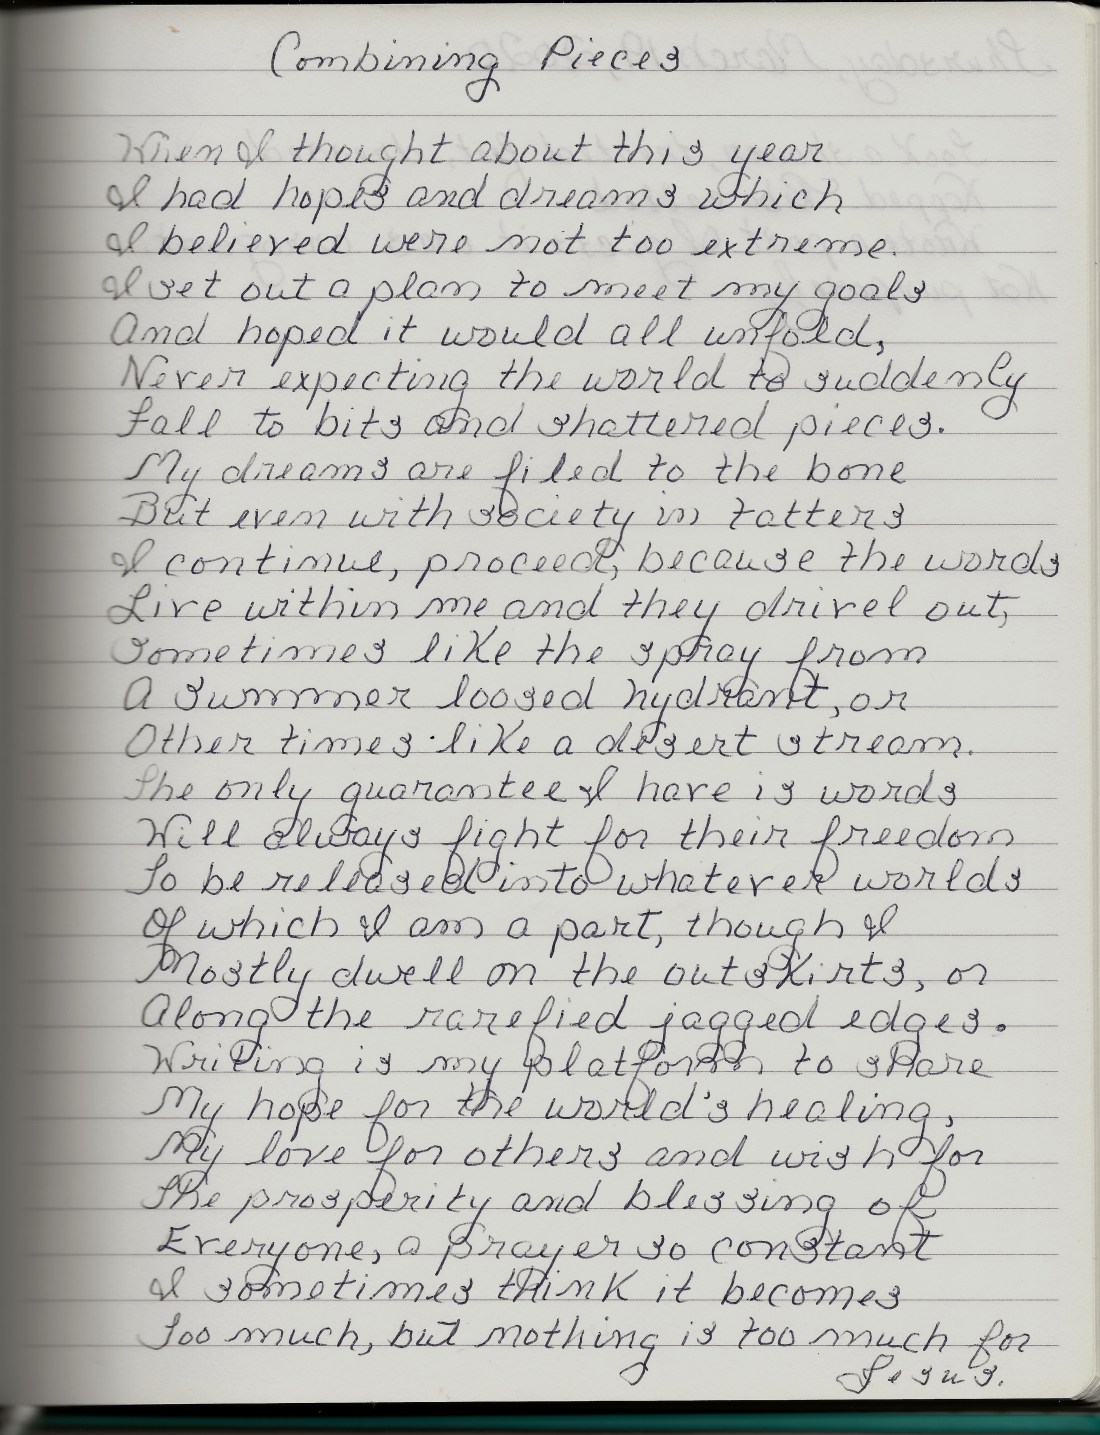 Combining Pieces
When I thought about this year
I had hopes and dreams which
I believed were not too extreme.
I set out a plan to meet my goals
And hoped it would all unfold,
Never expecting the world to suddenly
Fall to bits and shattered pieces.
My dreams are filed to the bone
But even with society in tatters
I continue, proceed, because the words
Live within me and they drivel out,
Sometimes like the spray from
A summer loosed hydrant, or
Other times like a desert stream.
The only guarantee I have is words
Will always fight for their freedom
To be released into whatever worlds
Of which I am a part, though I
Mostly dwell on the outskirts, or
Along the rarefied jagged edges.
Writing is my platform to share
My hope for the world's healing,
My love for others and wish for
The prosperity and blessing of
Everyone, a prayer so constant
I sometimes think it becomes
Too much, but nothing is too much for
Jesus.